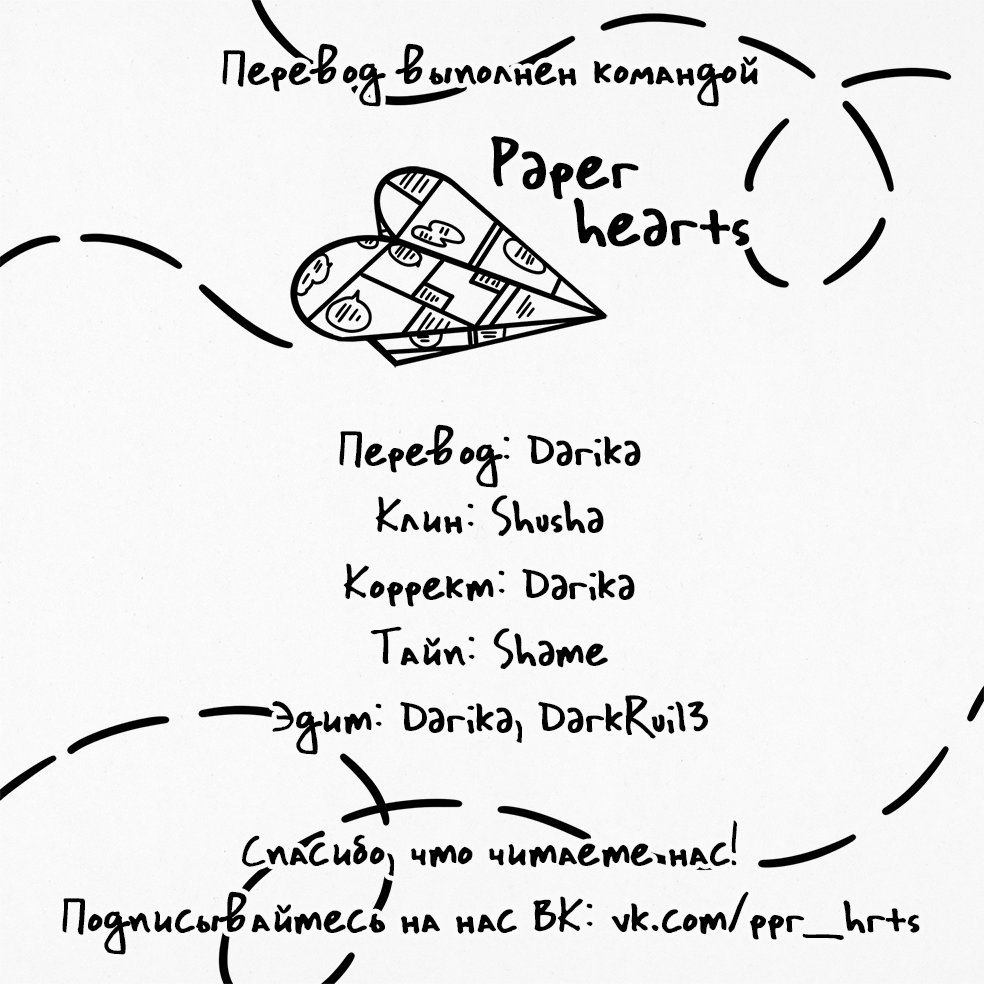 Перевод выполнен командой
Paper
hearts
Перевод: Darika
Клин: Shusha
Коррект: Darika
Тайп: Shame
Эдит: Darika, DarkRui13
Спасибо, что читаете нас!
Подписывайтесь на нас ВК: vk.com/ppr_hrts